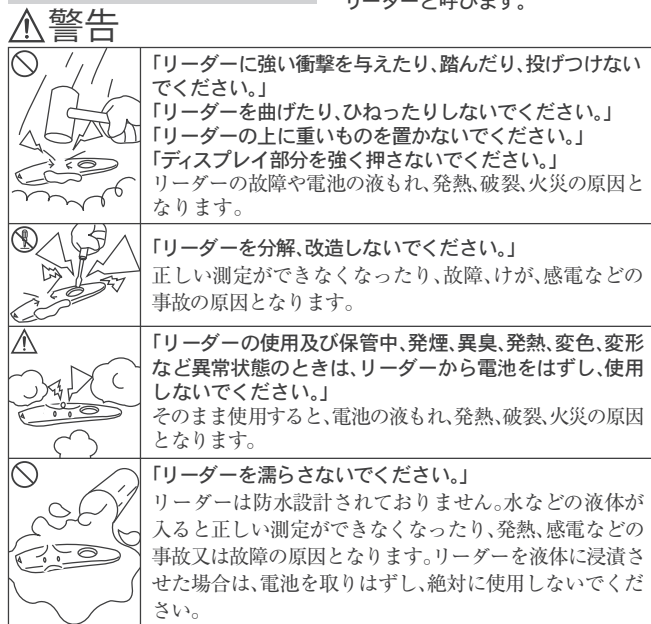 リーダーと呼びます。
警告
「リーダーに強い衝撃を与えたり、踏んだり、投げつけない
でください。」
「リーダーを曲げたり、ひねったりしないでください。」
「リーダーの上に重いものを置かないでください。」
「ディスプレイ部分を強く押さないでください。」
リーダーの故障や電池の液もれ、発熱、破裂、火災の原因と
なります。
「リーダーを分解、改造しないでください。」
正しい測定ができなくなったり、故障、けが、感電などの
事故の原因となります。
「リーダーの使用及び保管中、発煙、異臭、発熱、変色、変形
など異常状態のときは、リーダーから電池をはずし、使用
しないでください。」
そのまま使用すると、電池の液もれ、発熱、破裂、火災の原因
となります。
「リーダーを濡らさないでください。」
リーダーは防水設計されておりません。水などの液体が
入ると正しい測定ができなくなったり、発熱、感電などの
事故又は故障の原因となります。リーダーを液体に浸漬さ
せた場合は、電池を取りはずし、絶対に使用しないでくだ
さい。